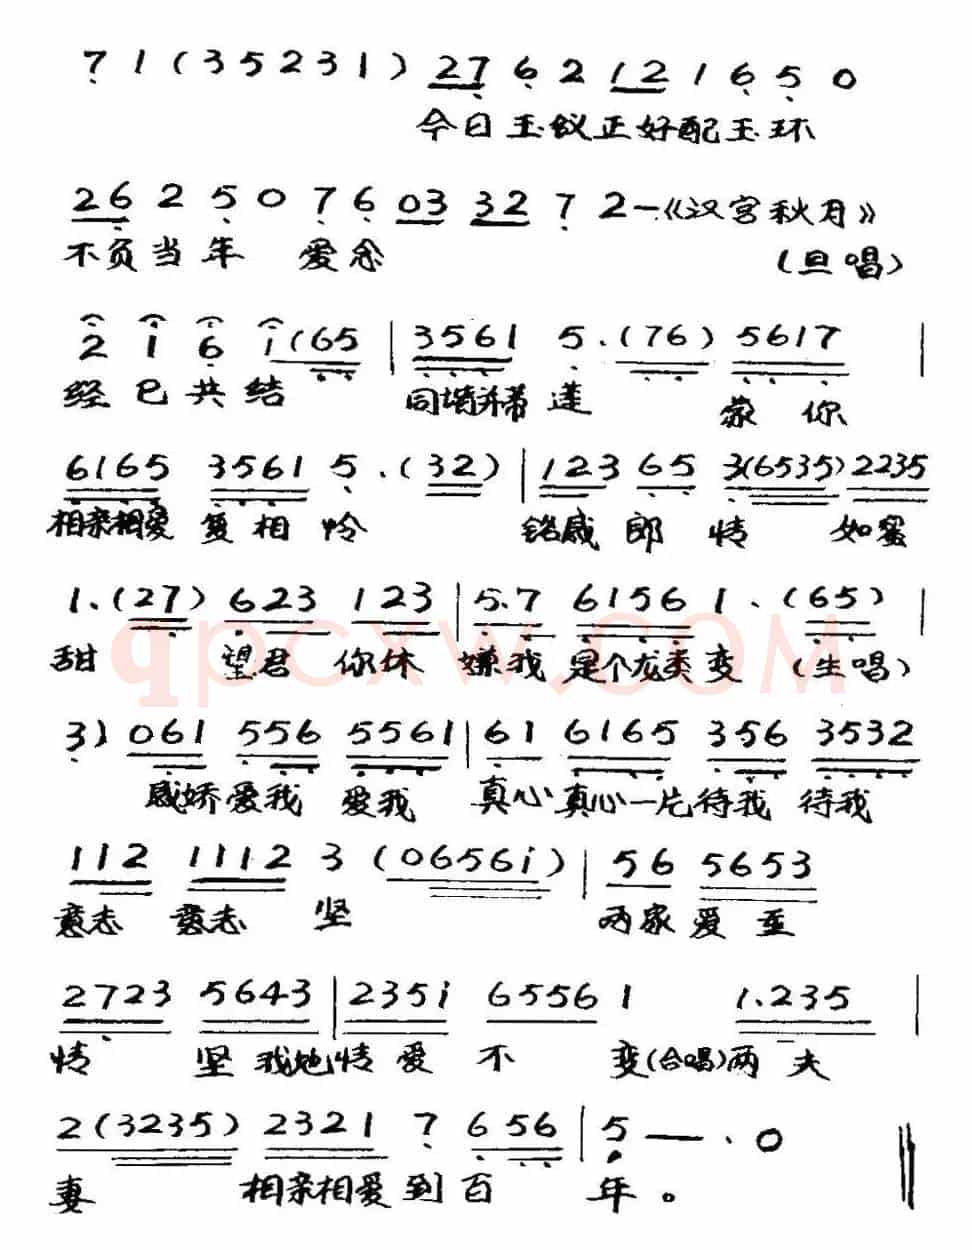 7 1 ( 3 5 2 3 1 ) 27 6 2 12 1 6 5 0
今日玉蚁正好配玉环
26 2 5 0 7 6 03 32 7 2一《汉宫秋月》
不负当年 爱念 (旦唱)
2 1 6 i (65 | 3561 5 . (76) 5617 |
经已共结 同埥并蒂莲 蒙你
6165 3561 5 . (32) | 123 65 3(6535) 2235
相亲相爱复相怜 铭感郎情如蜜
1 . (27) 623 123 | 5.7 6156 1 . (65) |
甜 望君你休嫌我是个龙类变 (生唱)
3) 061 556 5561 | 61 6165 356 3532
感娇爱我 爱我 真心真心一片待我 待我
112 1112 3 (0656i) | 56 5653
意志 意志 坚 两家爱至
2723 5643 | 235i 6556 1 1.235 |
情 坚我她情爱不变(合唱)两夫
2(3235) 2321 7 656 | 5 — . 0
妻 相亲相爱到百年。
qpcxw.com